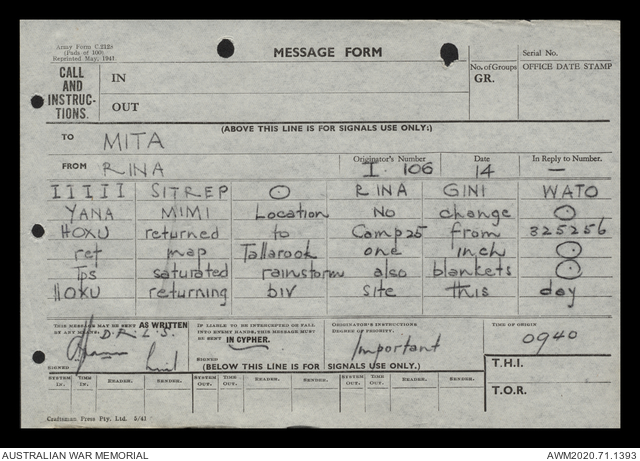 Army Form C.2128
(Pads of 100)
Reprinted May, 1941
MESSAGE FORM
Serial No.
CALL AND INSTRUC-TIONS.
IN
No. of Groups
GR.
OFFICE DATE STAMP
OUT
(ABOVE THIS LINE IS FOR SIGNALS USE ONLY:)
TO MITA
FROM RINA
Originator's Number
I. 106
Date
14
In Reply to Number.
—
IIIII SITREP ⊙ RINA GINI WATO
YANA MIMI Location No change ⊙
HOXU returned to Camp 25 from 825256
ref map Tallarook one inch ⊙
Tps saturated rainstorm also blankets ⊙
HOXU returning biv site this day
THIS MESSAGE MAY BE SENT AS WRITTEN
BY ANY MEANS. D.R.L.S.
SIGNED
IF LIABLE TO BE INTERCEPTED OR FALL
INTO ENEMY HANDS, THIS MESSAGE MUST
BE SENT IN CYPHER.
SIGNED
ORIGINATOR'S INSTRUCTIONS
DEGREE OF PRIORITY.
Important
TIME OF ORIGIN
0940
(BELOW THIS LINE IS FOR SIGNALS USE ONLY.)
T.H.I.
SYSTEM IN. TIME IN. READER. SENDER. SYSTEM OUT. TIME OUT. READER. SENDER. SYSTEM OUT. TIME OUT. READER. SENDER.
T.O.R.
Craftsman Press Pty. Ltd. 5/41
AUSTRALIAN WAR MEMORIAL
AWM2020.71.1393